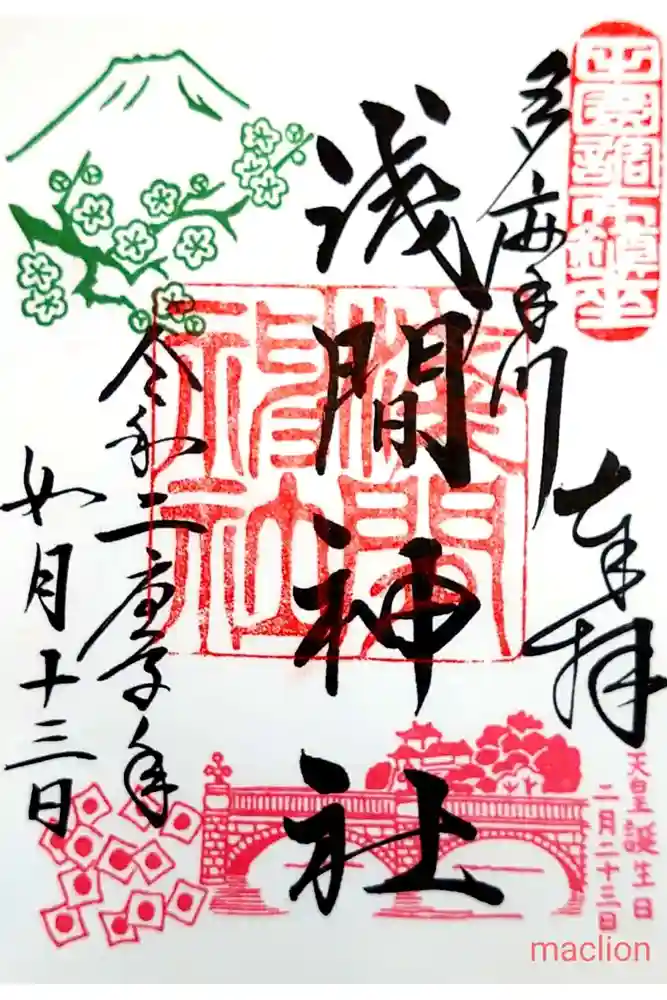 田園調布鎮座
奉拝
多摩川
浅間神社
淺間神社
令和二庚子年
如月十三日
天皇誕生日
二月二十三日
maclion